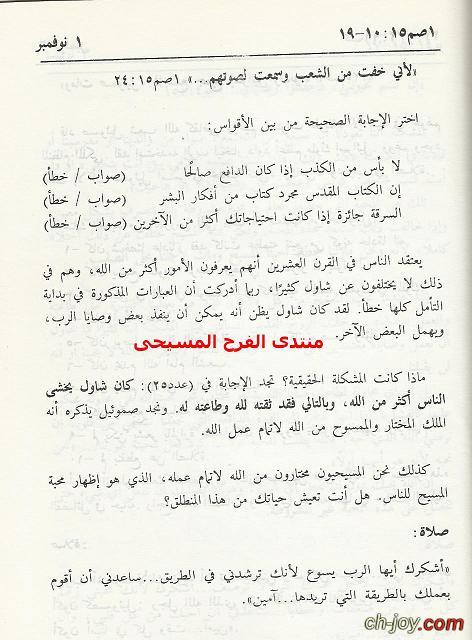 ١صم١٥:١٠-١٩ ١ نوفمبر
«لأني خفت من الشعب وسمعت لصوتهم...». ١صم٢٤:١٥
اختر الإجابة الصحيحة من بين الأقواس:
لا بأس من الكذب إذا كان الدافع صالحًا (صواب / خطأ)
إن الكتاب المقدس مجرد كتاب من أفكار البشر (صواب / خطأ)
السرقة جائزة إذا كانت احتياجاتك أكثر من الآخرين (صواب / خطأ)
يعتقد الناس في القرن العشرين أنهم يعرفون الأمور أكثر من الله، وهم في
ذلك لا يختلفون عن شاول كثيرًا، ربما أدركت أن العبارات المذكورة في بداية
التأمل كلها خطأ. لقد كان شاول يظن أنه يمكن أن ينفذ بعض وصايا الرب،
ويهمل البعض الآخر.
منتدى الفرح المسيحى
ماذا كانت المشكلة الحقيقية؟ تجد الإجابة في (عدد٢٥): كان شاول يخشى
الناس أكثر من الله، وبالتالي فقد ثقته لله وطاعته له. ونجد صموئيل يذكره أنه
الملك المختار والممسوح من الله لاتمام عمل الله.
كذلك نحن المسيحيون مختارون من الله لاتمام عمله، الذي هو إظهار محبة
المسيح للناس. هل أنت تعيش حياتك من هذا المنطلق؟
صلاة:
«أشكرك أيها الرب يسوع لأنك ترشدني في الطريق...ساعدني أن أقوم
بعملك بالطريقة التي تريدها...آمين».
ch-joy.com